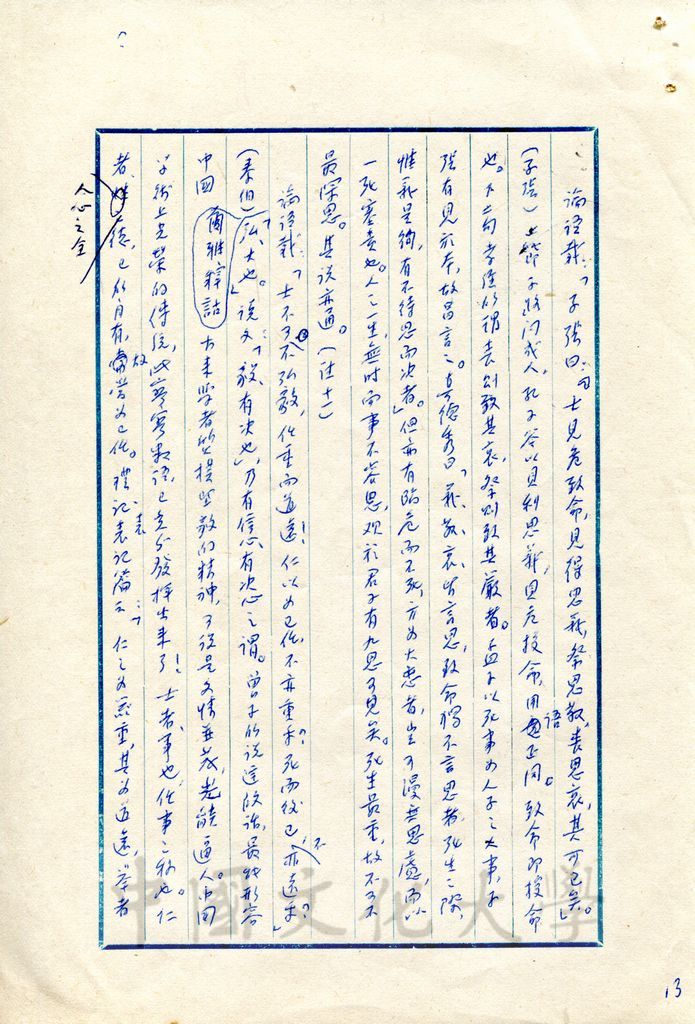 論語載:「子張曰:『士見危致命,見得思義,祭思敬,喪思哀,其可已矣。』」
(子張)上節子路問成人,孔子答以見利思義,見危授命,用語正同。致命即授命
也。下二句孝經所謂喪則致其哀,祭則致其嚴者。孟子以死事為人子之大事,子
張有見於本,故昌言之。真德秀曰「義、敬、哀、皆言思,致命獨不言思者,死生之際,
惟義是徇,有不待思而決者。」但亦有臨危而不死,方為大忠者,豈可漫無思慮而以
一死塞責也。人之一生,無時而事不容思,观於君子有九思可見矣。死生最重,故不可不
最深思。其說亦通。(註十一)
論語載:「士不可不弘毅,任重而道遠!仁以為己任,不亦重乎?死而後已,不亦遠乎?」
(泰伯)「弘、大也。」說文:「毅、有決也」,乃有信心、有決心之謂。曾子的說這段話,最能形容
中國 爾雅釋詁 古來學者堅毅的精神,可說是文情並茂,光能逼人。中國
學術上光榮的傳統,此寥寥數語,已充分發揮出來了!士者、事也,任事之稱也。仁
者、人心之全德,已所固有,故當為己任。禮記表記篇云:「仁之為器重,其為道遠,舉者
中國文化大學
13